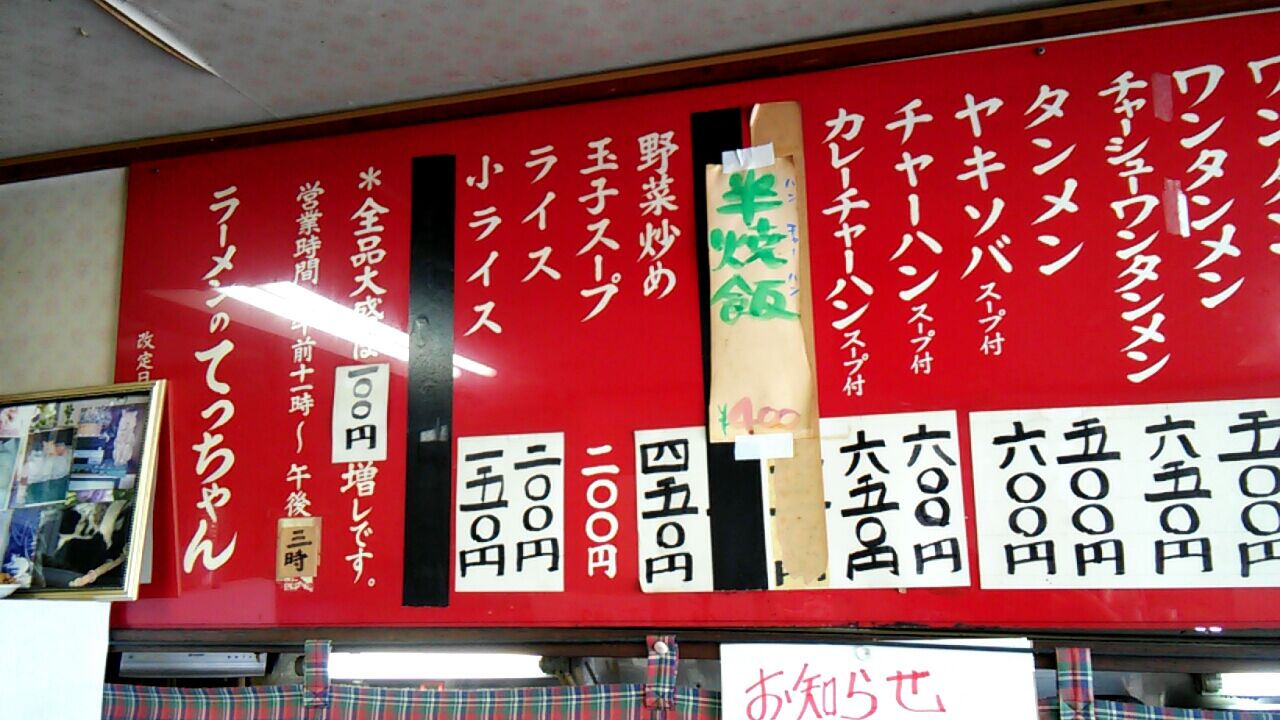 ワンタンメン 五〇〇円
チャーシューワンタンメン 六五〇円
タンメン 五〇〇円
ヤキソバ スープ付 六〇〇円
チャーハン スープ付 六〇〇円
カレーチャーハン スープ付 六五〇円
ハンチャーハン
半焼飯 ¥400
野菜炒め 四五〇円
玉子スープ 二〇〇円
ライス 二〇〇円
小ライス 一五〇円
＊全品大盛は一〇〇円増しです。
営業時間 午前十一時〜午後三時
ラーメンのてっちゃん
改定日
お知らせ